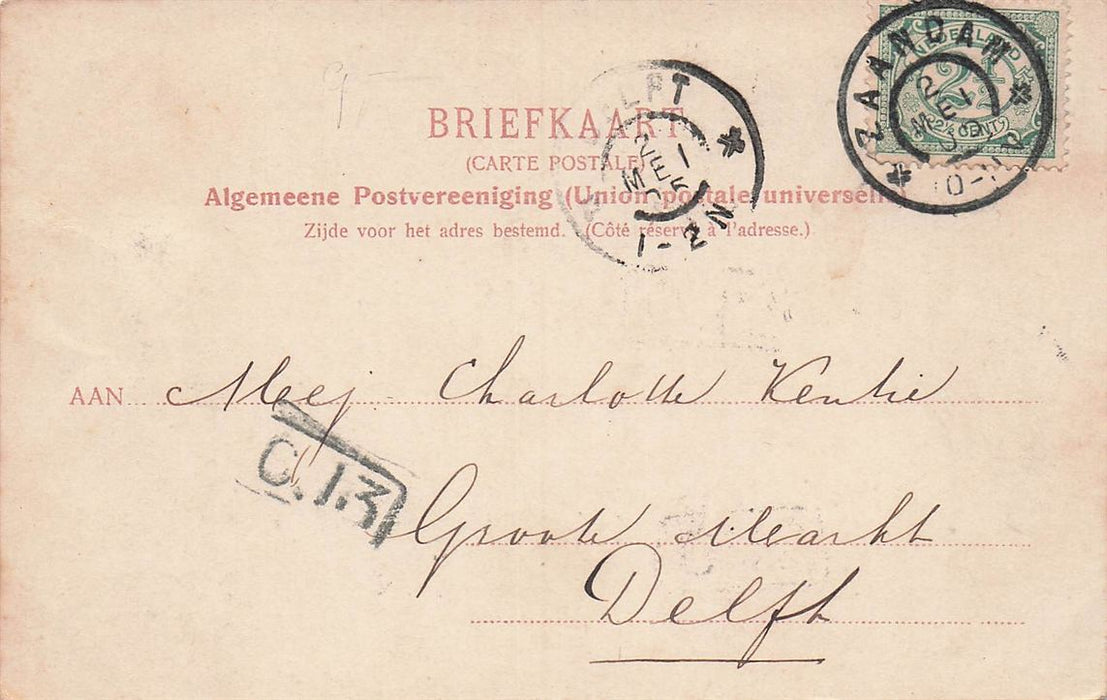 9,-
BRIEFKAART
(CARTE POSTALE)
Algemeene Postvereeniging (Union postale universelle)
Zijde voor het adres bestemd. (Côté réservé à l'adresse.)
DELFT
2 MEI 05
1-2N
ZAANDAM
2 MEI
10-11
NEDERLAND
2½
2½ CENT
AAN Mej. Charlotte Kentie
C.13
Groote Markt
Delft